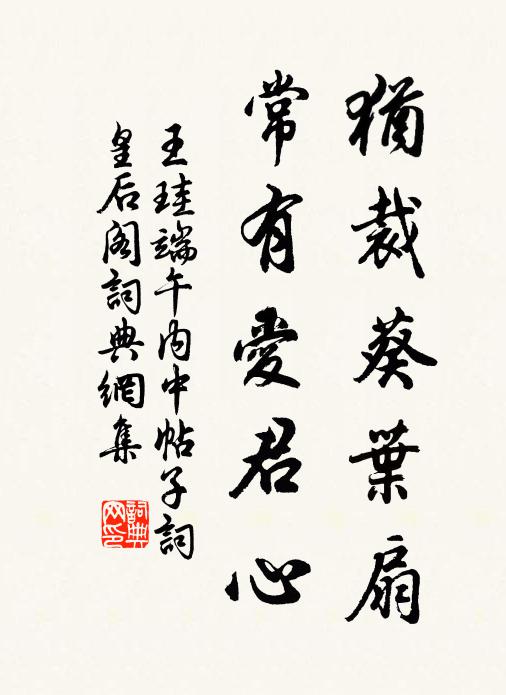 猶裁葵葉扇
常有愛君心
王珪端午內中帖子詞
皇后閣詞典網集
詞典网印